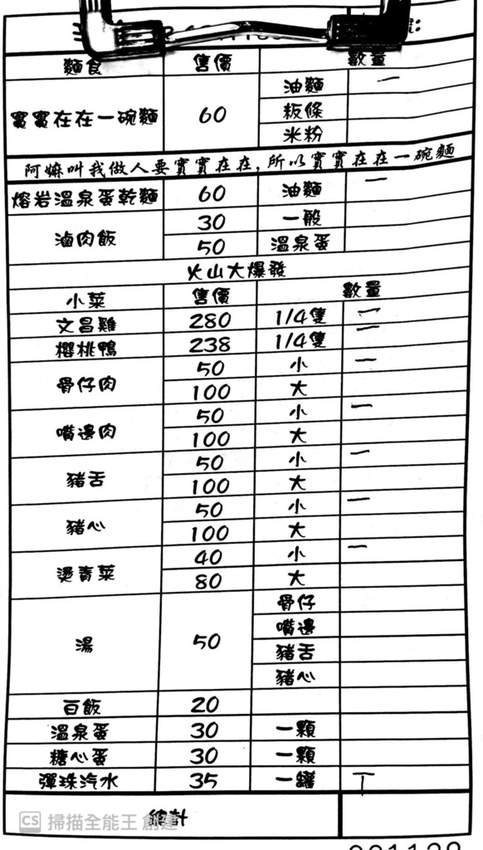 麵食 售價 數量
實實在在一碗麵 60 油麵 一
粄條
米粉
阿嬤叫我做人要實實在在,所以實實在在一碗麵
熔岩溫泉蛋乾麵 60 油麵 一
滷肉飯 30 一般
50 溫泉蛋
火山大爆發
小菜 售價 數量
文昌雞 280 1/4隻 一
櫻桃鴨 238 1/4隻 一
骨仔肉 50 小 一
100 大
嘴邊肉 50 小 一
100 大
豬舌 50 小 一
100 大
豬心 50 小 一
100 大
燙青菜 40 小 一
80 大
湯 50 骨仔
嘴邊
豬舌
豬心
白飯 20
溫泉蛋 30 一顆
糖心蛋 30 一顆
彈珠汽水 35 一罐 丅
總計
CS 掃描全能王 創建